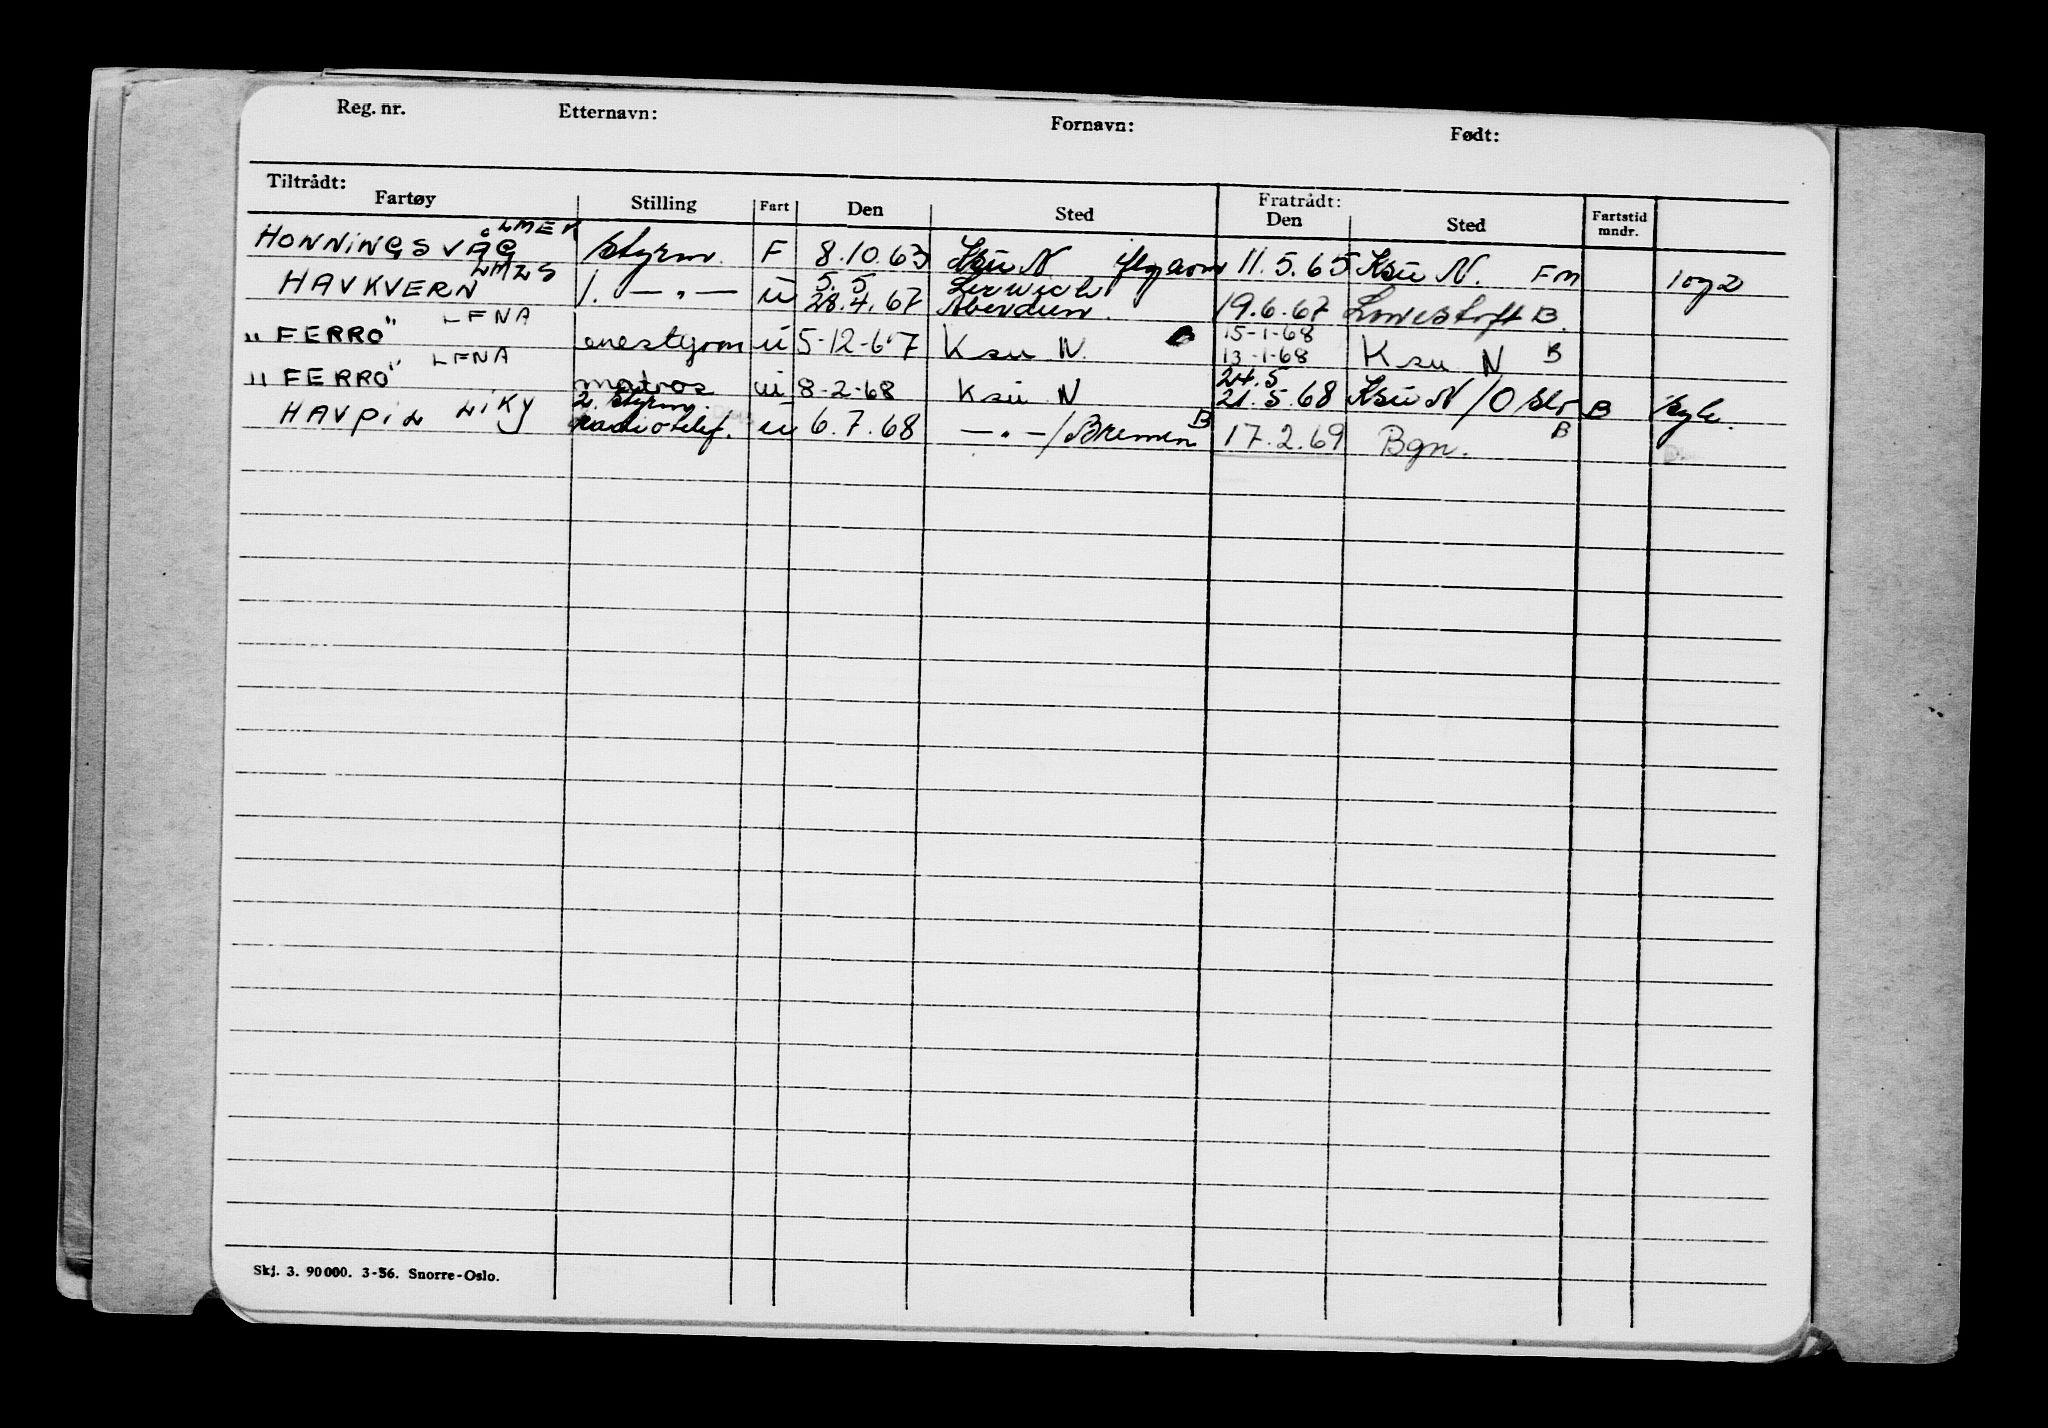 Reg. nr. Etternavn: Fornavn: Født:
Tiltrådt: Fratrådt:
Fartøy Stilling Fart Den Sted Den Sted Fartstid mndr.
LMEK
HONNINGSVÅG styrm. F 8.10.63 Ksu N. 11.5.65 Ksu N. FM 1 og 2
LMZS 5. 5 Lerwick
HAVKVERN 1. — " — u 28.4.67 Aberdeen. 19.6.67 Lowestoft B.
LFNA 15-1-68
"FERRO" enestyrm u 5-12-67 Ksu N. B 13-1-68 Ksu N B
LFNA 24.5
"FERRO" matros u 8-2-68 Ksu N 21.5.68 Ksu N / Oslo B syk.
2. styrm.
HAVPIL LIKY radiotelef. u 6.7.68 — " — / Bremen B 17.2.69 Bgn. B
Skj. 3. 90 000. 3-56. Snorre-Oslo.